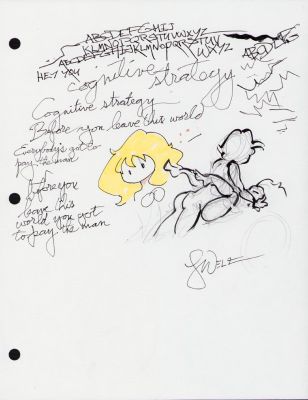 ABCDEFGHIJ
KLMNOPQRSTUVWXYZ
ABCDEFGHIJKLMNOPQRSTUV
WXYZ
HEY YOU
cognitive strategy
Cognitive strategy
Before you leave this world
Everybody's got to
pay the man
Before you
leave this
world you got
to pay the man